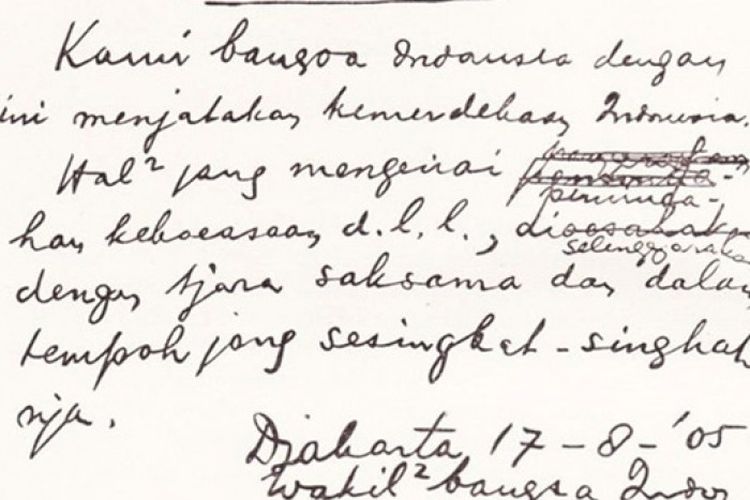 Kami bangsa Indonesia dengan
ini menjatakan kemerdekaan Indonesia.
Hal² jang mengenai
peminda-
han kekoeasaan d.l.l., dioesahakan
selenggarakan
dengan tjara saksama dan dalam
tempoh jang sesingkat-singkat
nja.
Djakarta 17-8-'05
Wakil² bangsa Indon